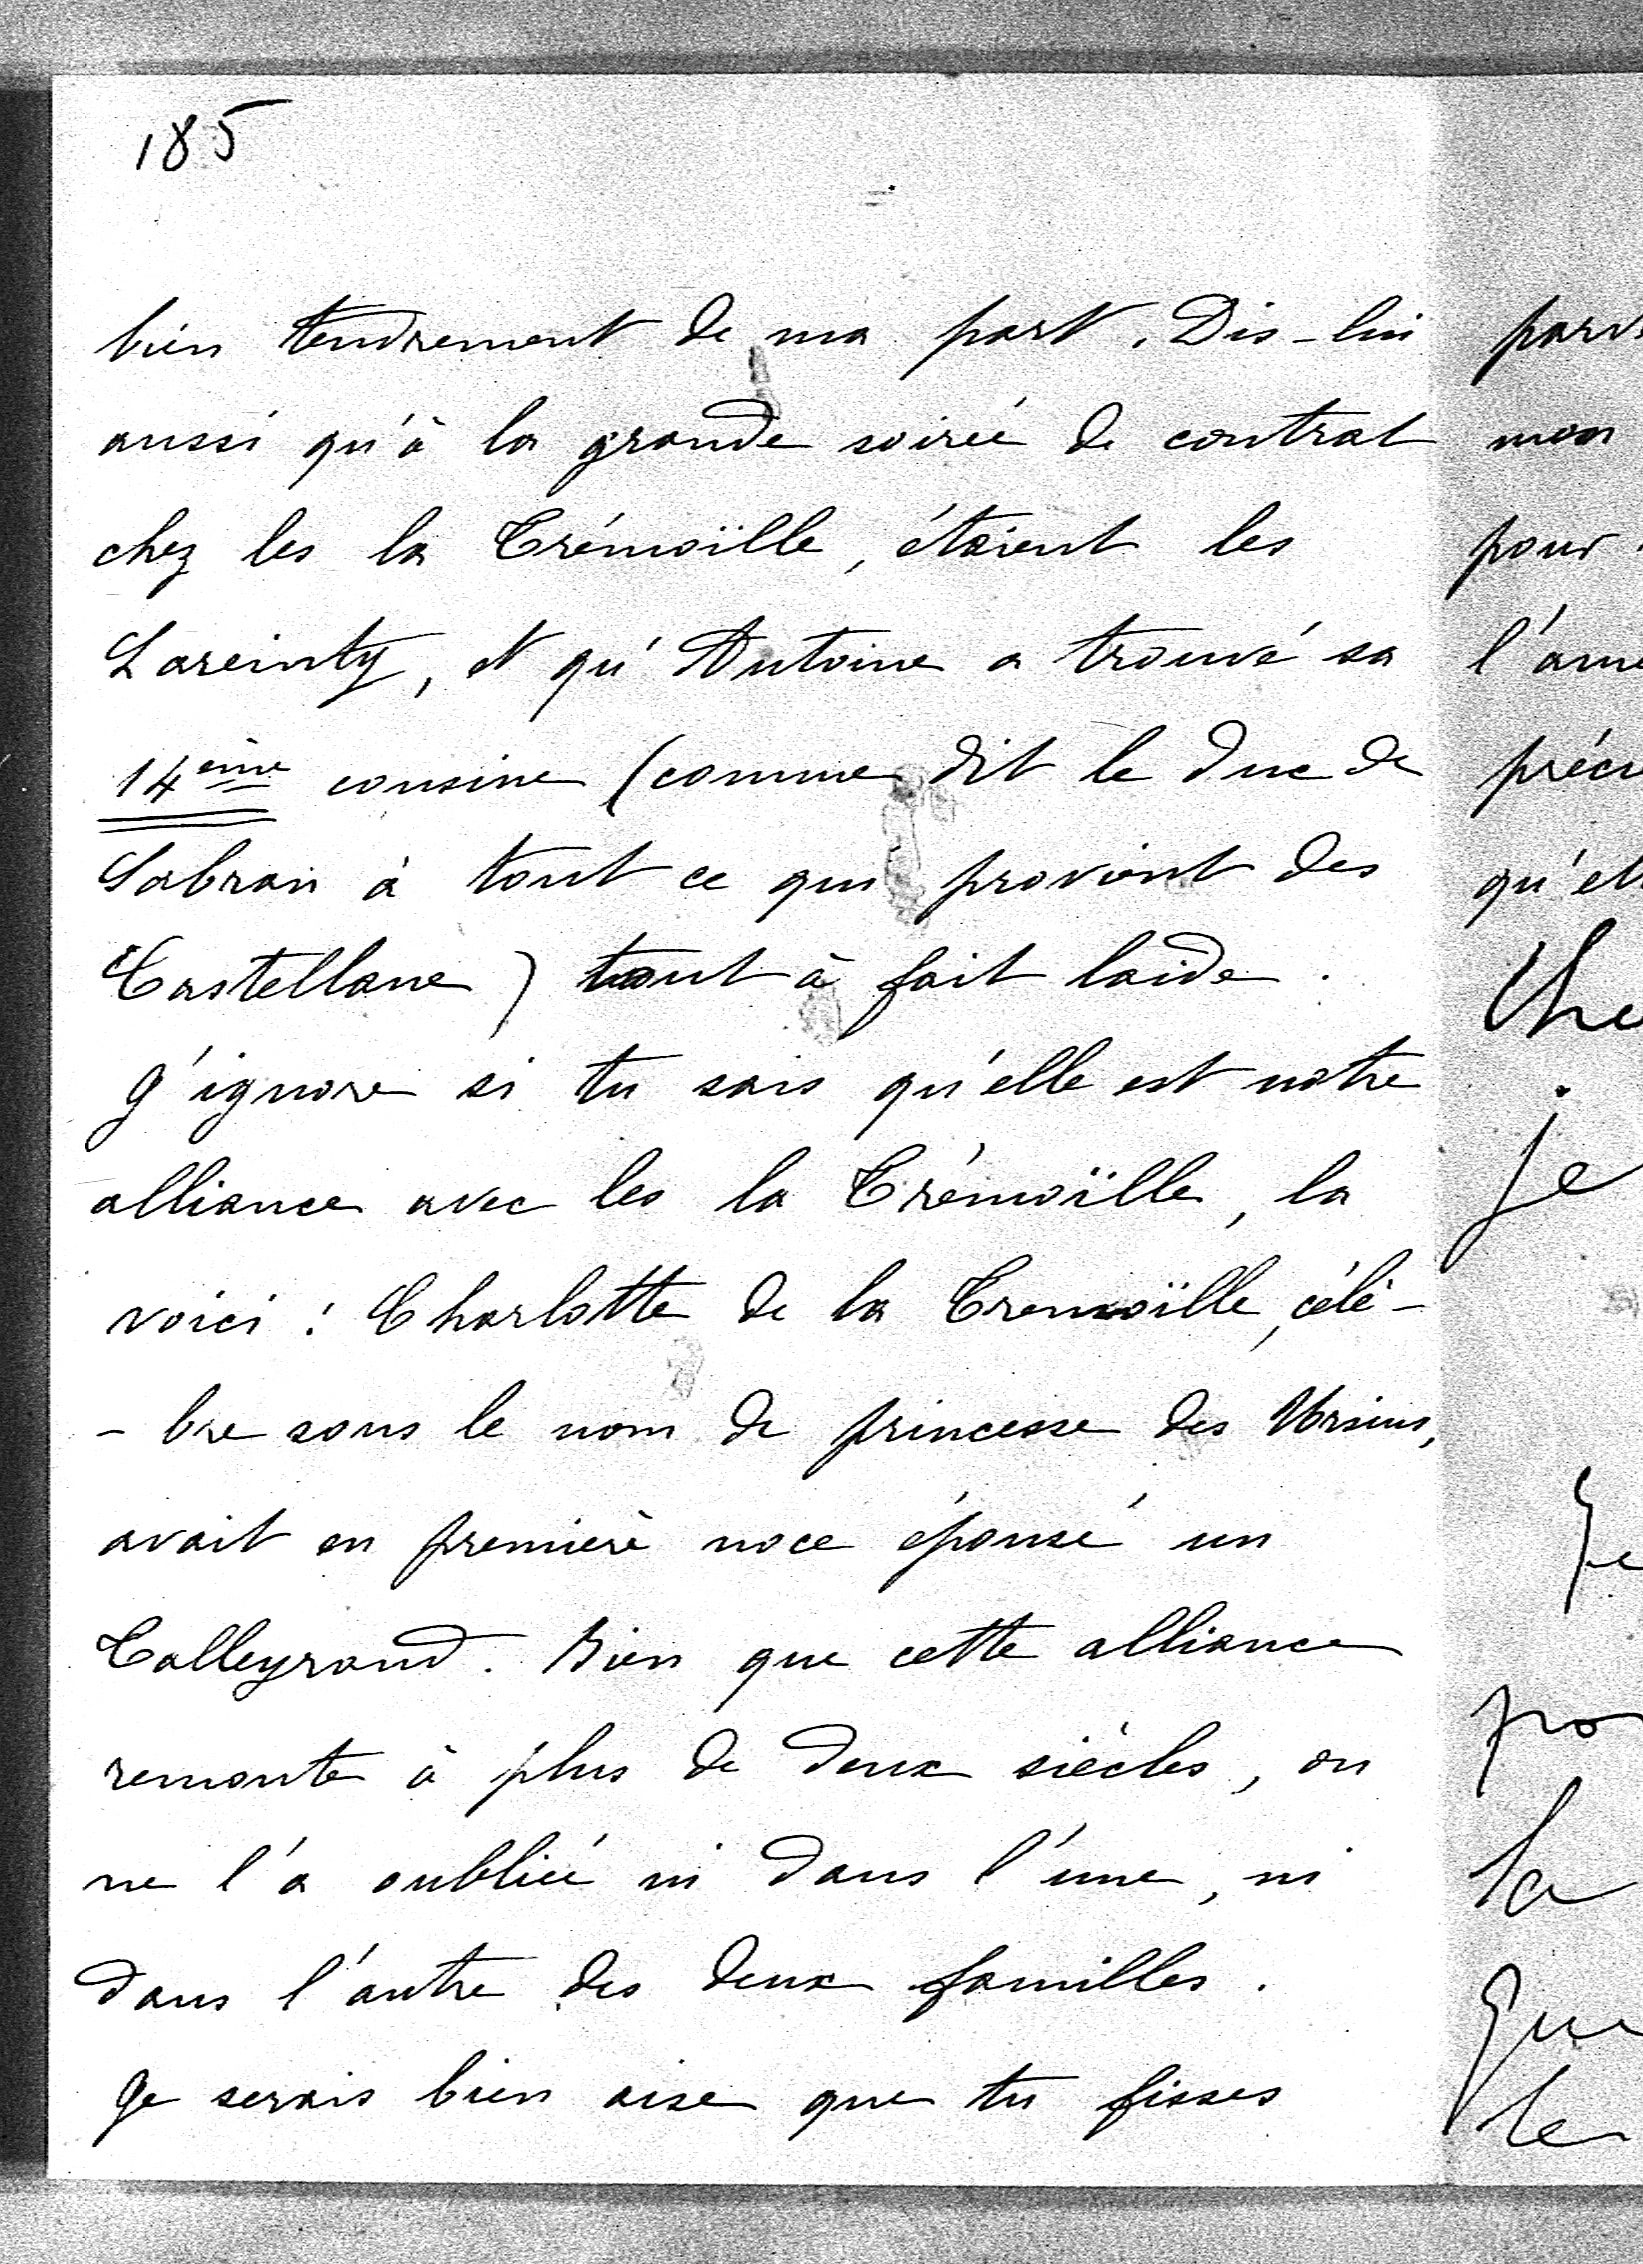 185
bien tendrement de ma part. Dis-lui
aussi qu'à la grande soirée de contrat
chez les la Trémoïlle, étaient les
Lareinty, et qu'Antoine a trouvé sa
14ème cousine (comme dit le duc de
Sabran à tout ce qui provient des
Castellane) tout à fait laide.
J'ignore si tu sais qu'elle est notre
alliance avec les la Trémoïlle, la
voici : Charlotte de la Tremoïlle, célè-
- bre sous le nom de princesse des Ursins,
avait en première noce épousé un
Talleyrand. Bien que cette alliance
remonte à plus de deux siècles, on
ne l'a oubliée ni dans l'une, ni
dans l'autre des deux familles.
Je serais bien aise que tu fisses
mon
pour
je
la
le